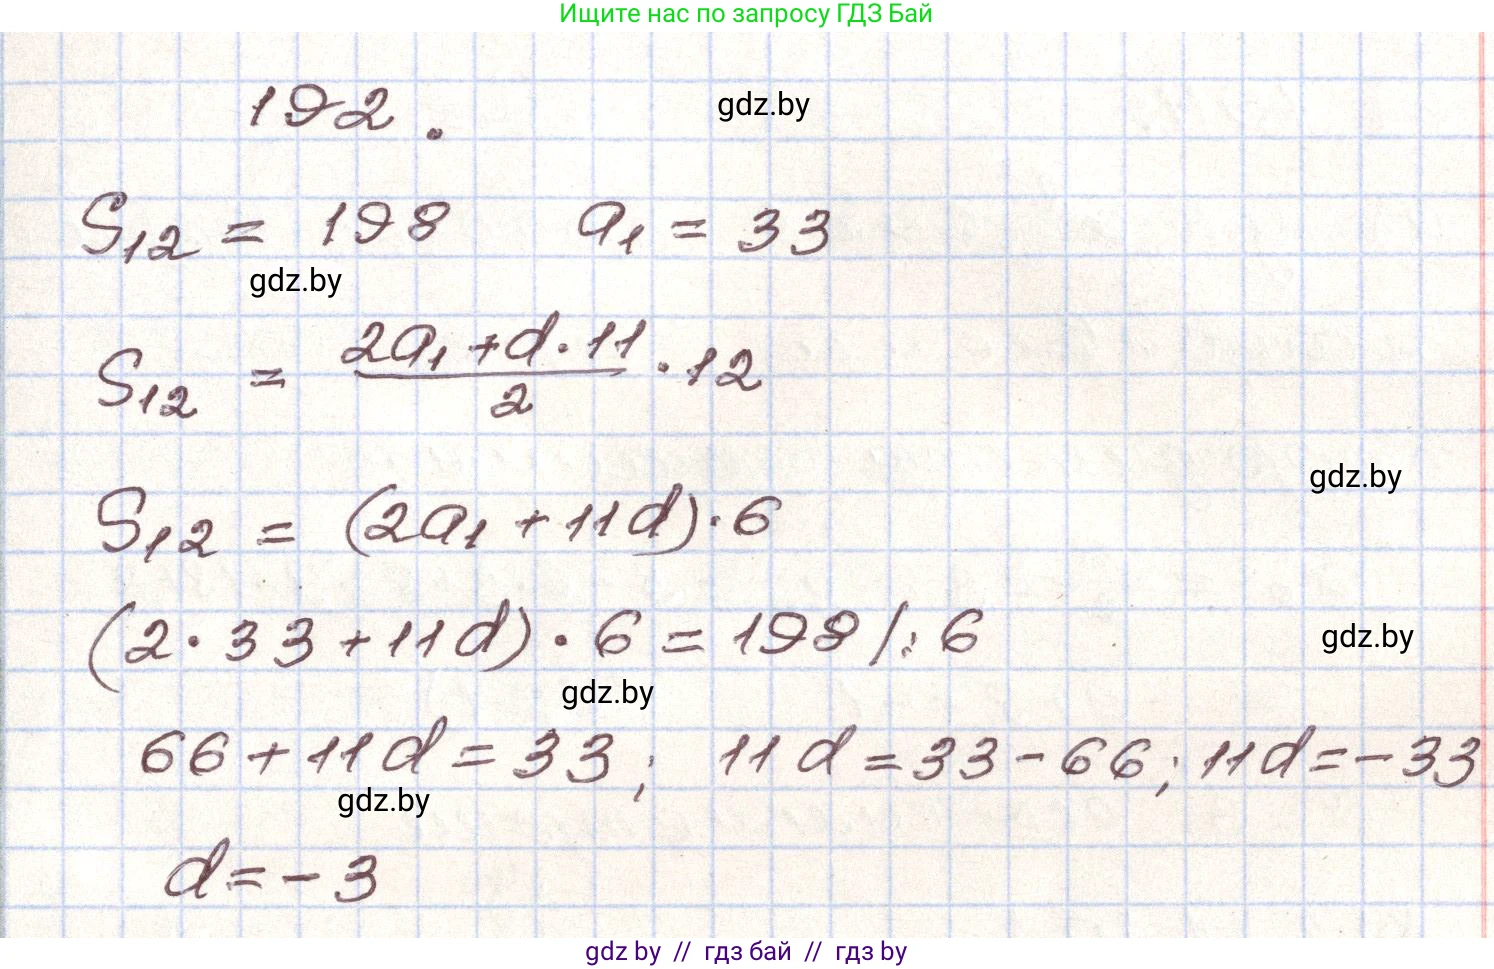 Ищите нас по запросу ГДЗ Бай
192.
gdz.by
S₁₂ = 198 a₁ = 33
gdz.by
S₁₂ = (2a₁ + d · 11)/2 · 12
gdz.by
S₁₂ = (2a₁ + 11d) · 6
(2 · 33 + 11d) · 6 = 198 / : 6
gdz.by
gdz.by
66 + 11d = 33; 11d = 33 - 66; 11d = -33
gdz.by
d = -3
gdz.by // гдз бай // гдз by